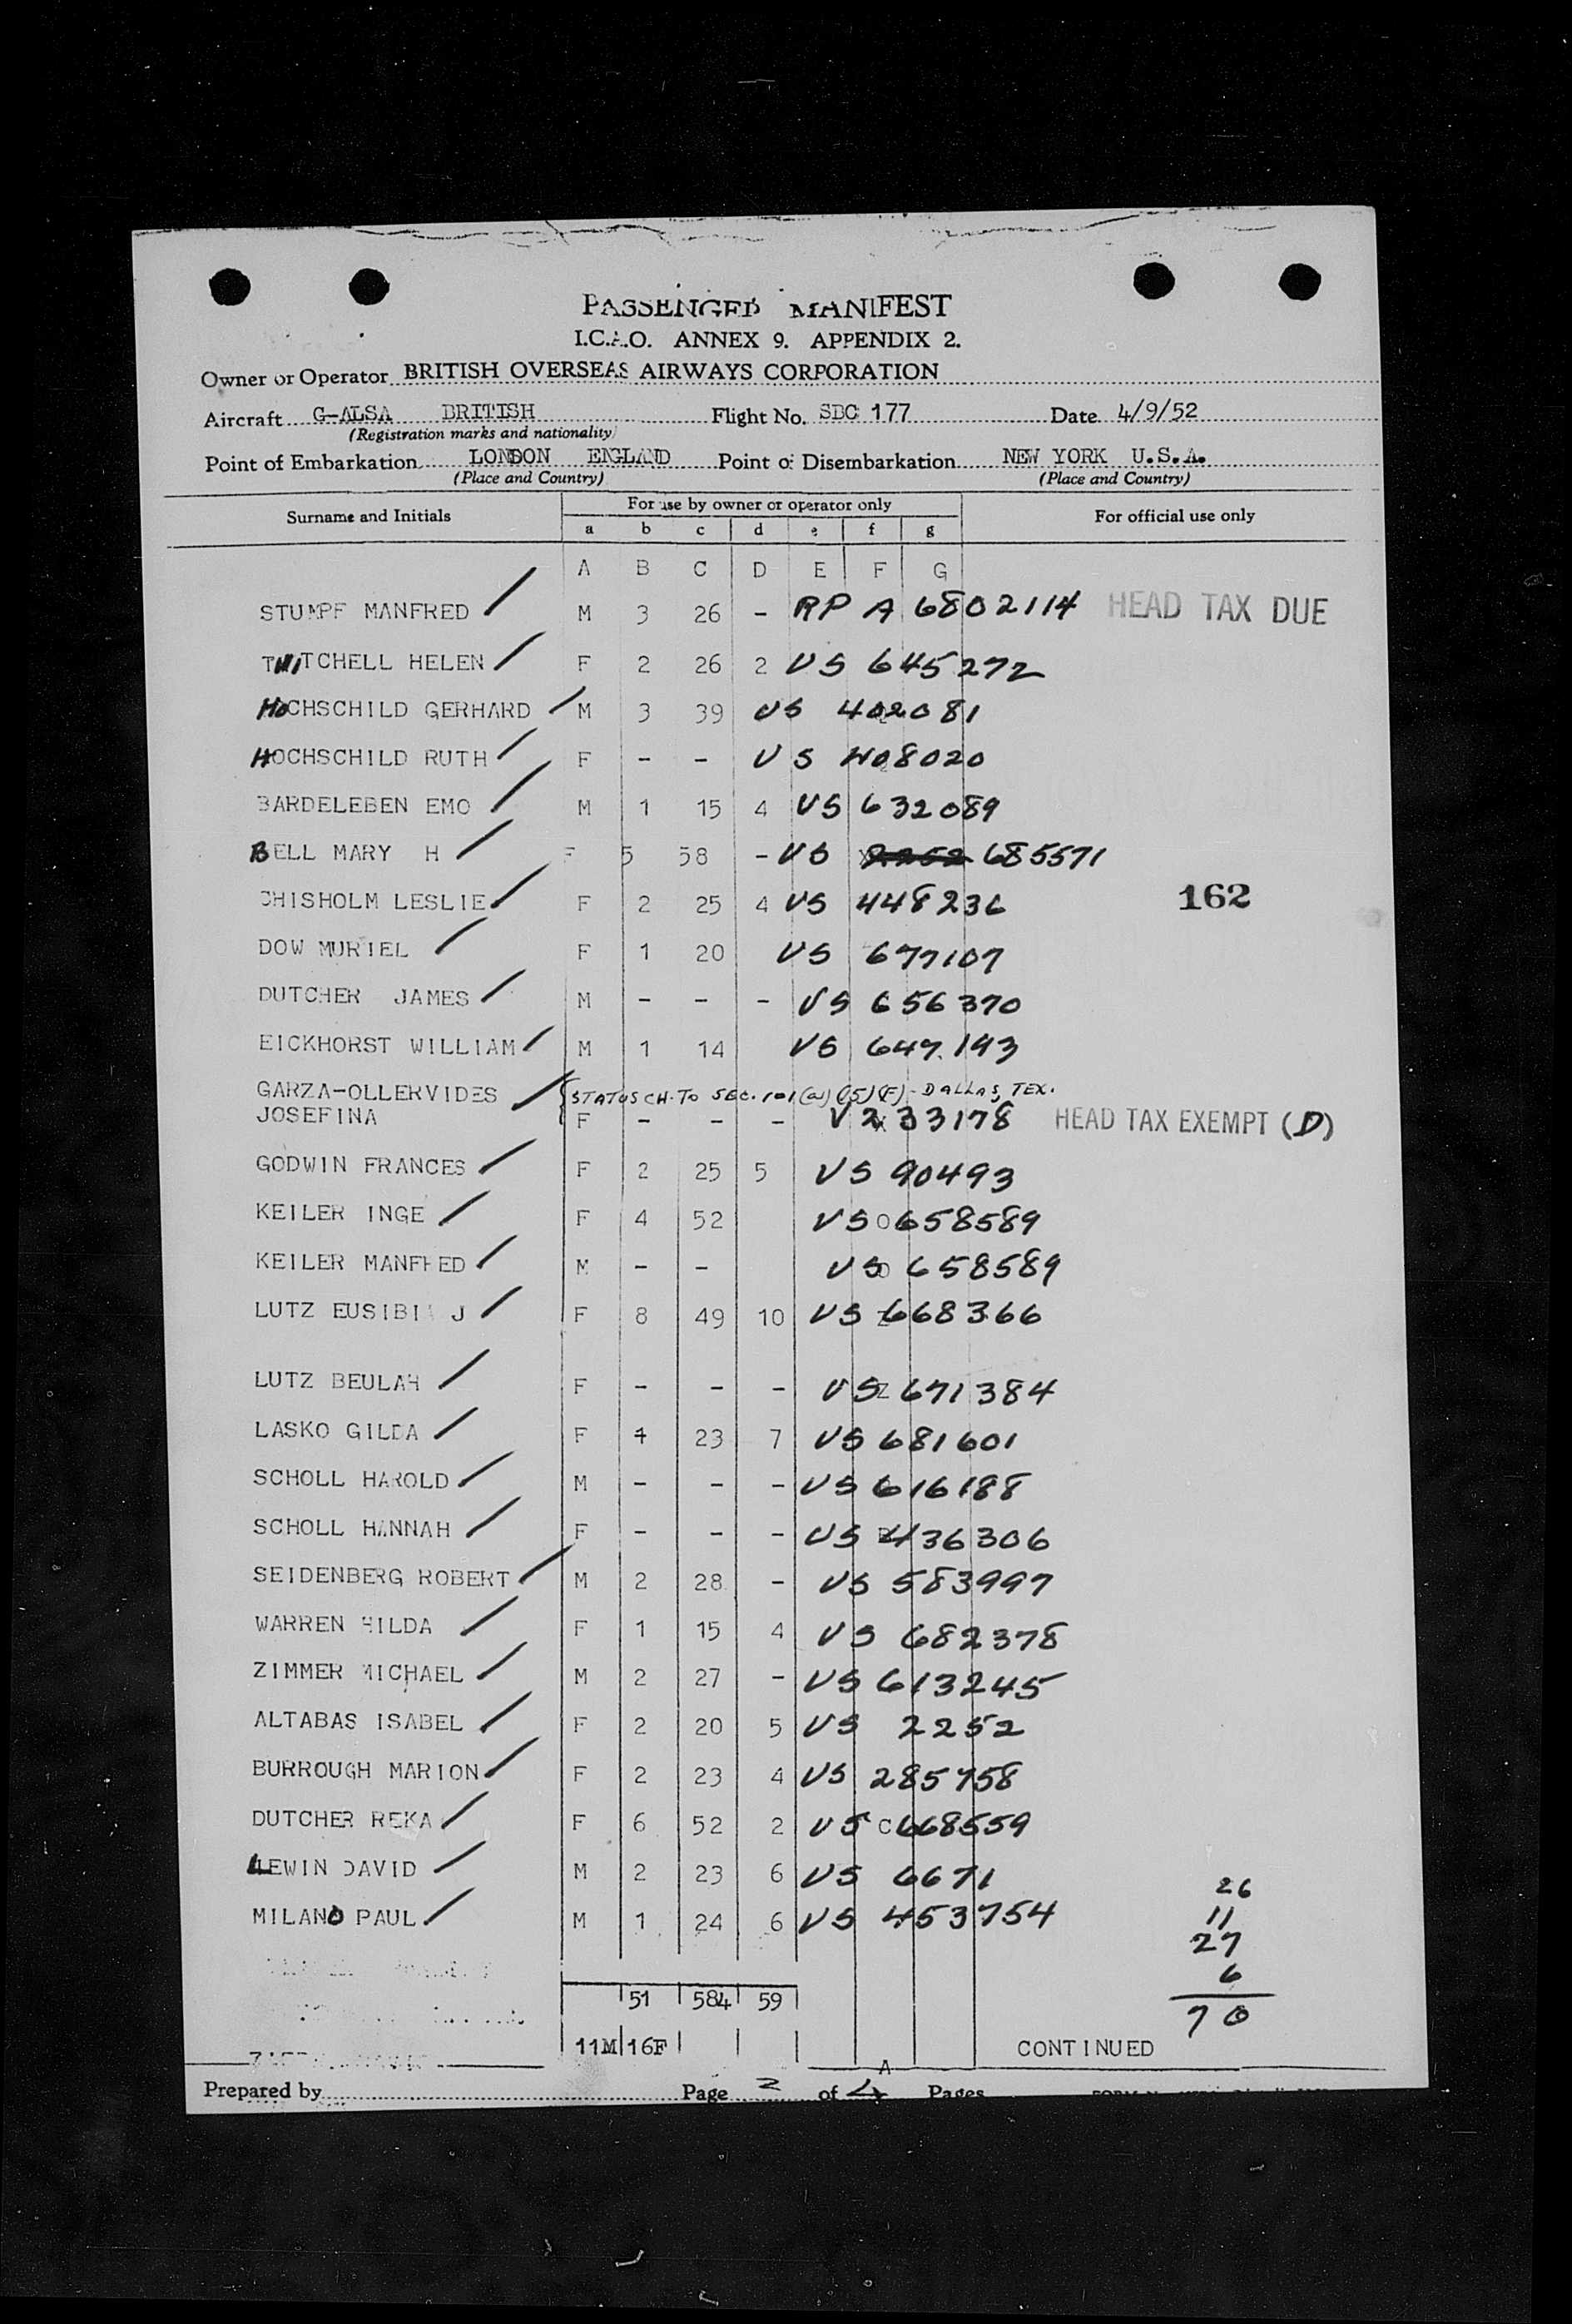 PASSENGER MANIFEST
I.C.A.O. ANNEX 9. APPENDIX 2.
Owner or Operator BRITISH OVERSEAS AIRWAYS CORPORATION
Aircraft G-ALSA BRITISH Flight No. SBC 177 Date 4/9/52
(Registration marks and nationality)
Point of Embarkation LONDON ENGLAND Point of Disembarkation NEW YORK U.S.A.
(Place and Country) (Place and Country)
Surname and Initials For use by owner or operator only For official use only
a b c d e f g
A B C D E F G
STUMPF MANFRED M 3 26 - RP A 6802114 HEAD TAX DUE
TWITCHELL HELEN F 2 26 2 US 645272
HOCHSCHILD GERHARD M 3 39 US 402081
HOCHSCHILD RUTH F - - US 408020
BARDELEBEN EMO M 1 15 4 US 632089
BELL MARY H F 5 58 - US 2252 685571
CHISHOLM LESLIE F 2 25 4 US 448236
162
DOW MURIEL F 1 20 US 677107
DUTCHER JAMES M - - - US 656370
EICKHORST WILLIAM M 1 14 US 647193
GARZA-OLLERVIDES STATUS CH. TO SEC. 101(a)(15)(F) - DALLAS, TEX.
JOSEFINA F - - - V 233178 HEAD TAX EXEMPT (D)
GODWIN FRANCES F 2 25 5 US 90493
KEILER INGE F 4 52 US 0658589
KEILER MANFRED M - - US 658589
LUTZ EUSIBIA J F 8 49 10 US 668366
LUTZ BEULAH F - - - US 671384
LASKO GILDA F 1 23 7 US 681601
SCHOLL HAROLD M - - - US 616188
SCHOLL HANNAH F - - - US 436306
SEIDENBERG ROBERT M 2 28 - US 583997
WARREN HILDA F 1 15 4 US 682378
ZIMMER MICHAEL M 2 27 - US 613245
ALTABAS ISABEL F 2 20 5 US 2252
BURROUGH MARION F 2 23 4 US 285758
DUTCHER REKA F 6 52 2 US C668559
LEWIN DAVID M 2 23 6 US 6671
26
MILANO PAUL M 1 24 6 US 453754
11
27
6
51 584 59
70
11M 16F
CONTINUED
A
Prepared by Page 2 of 4 Pages